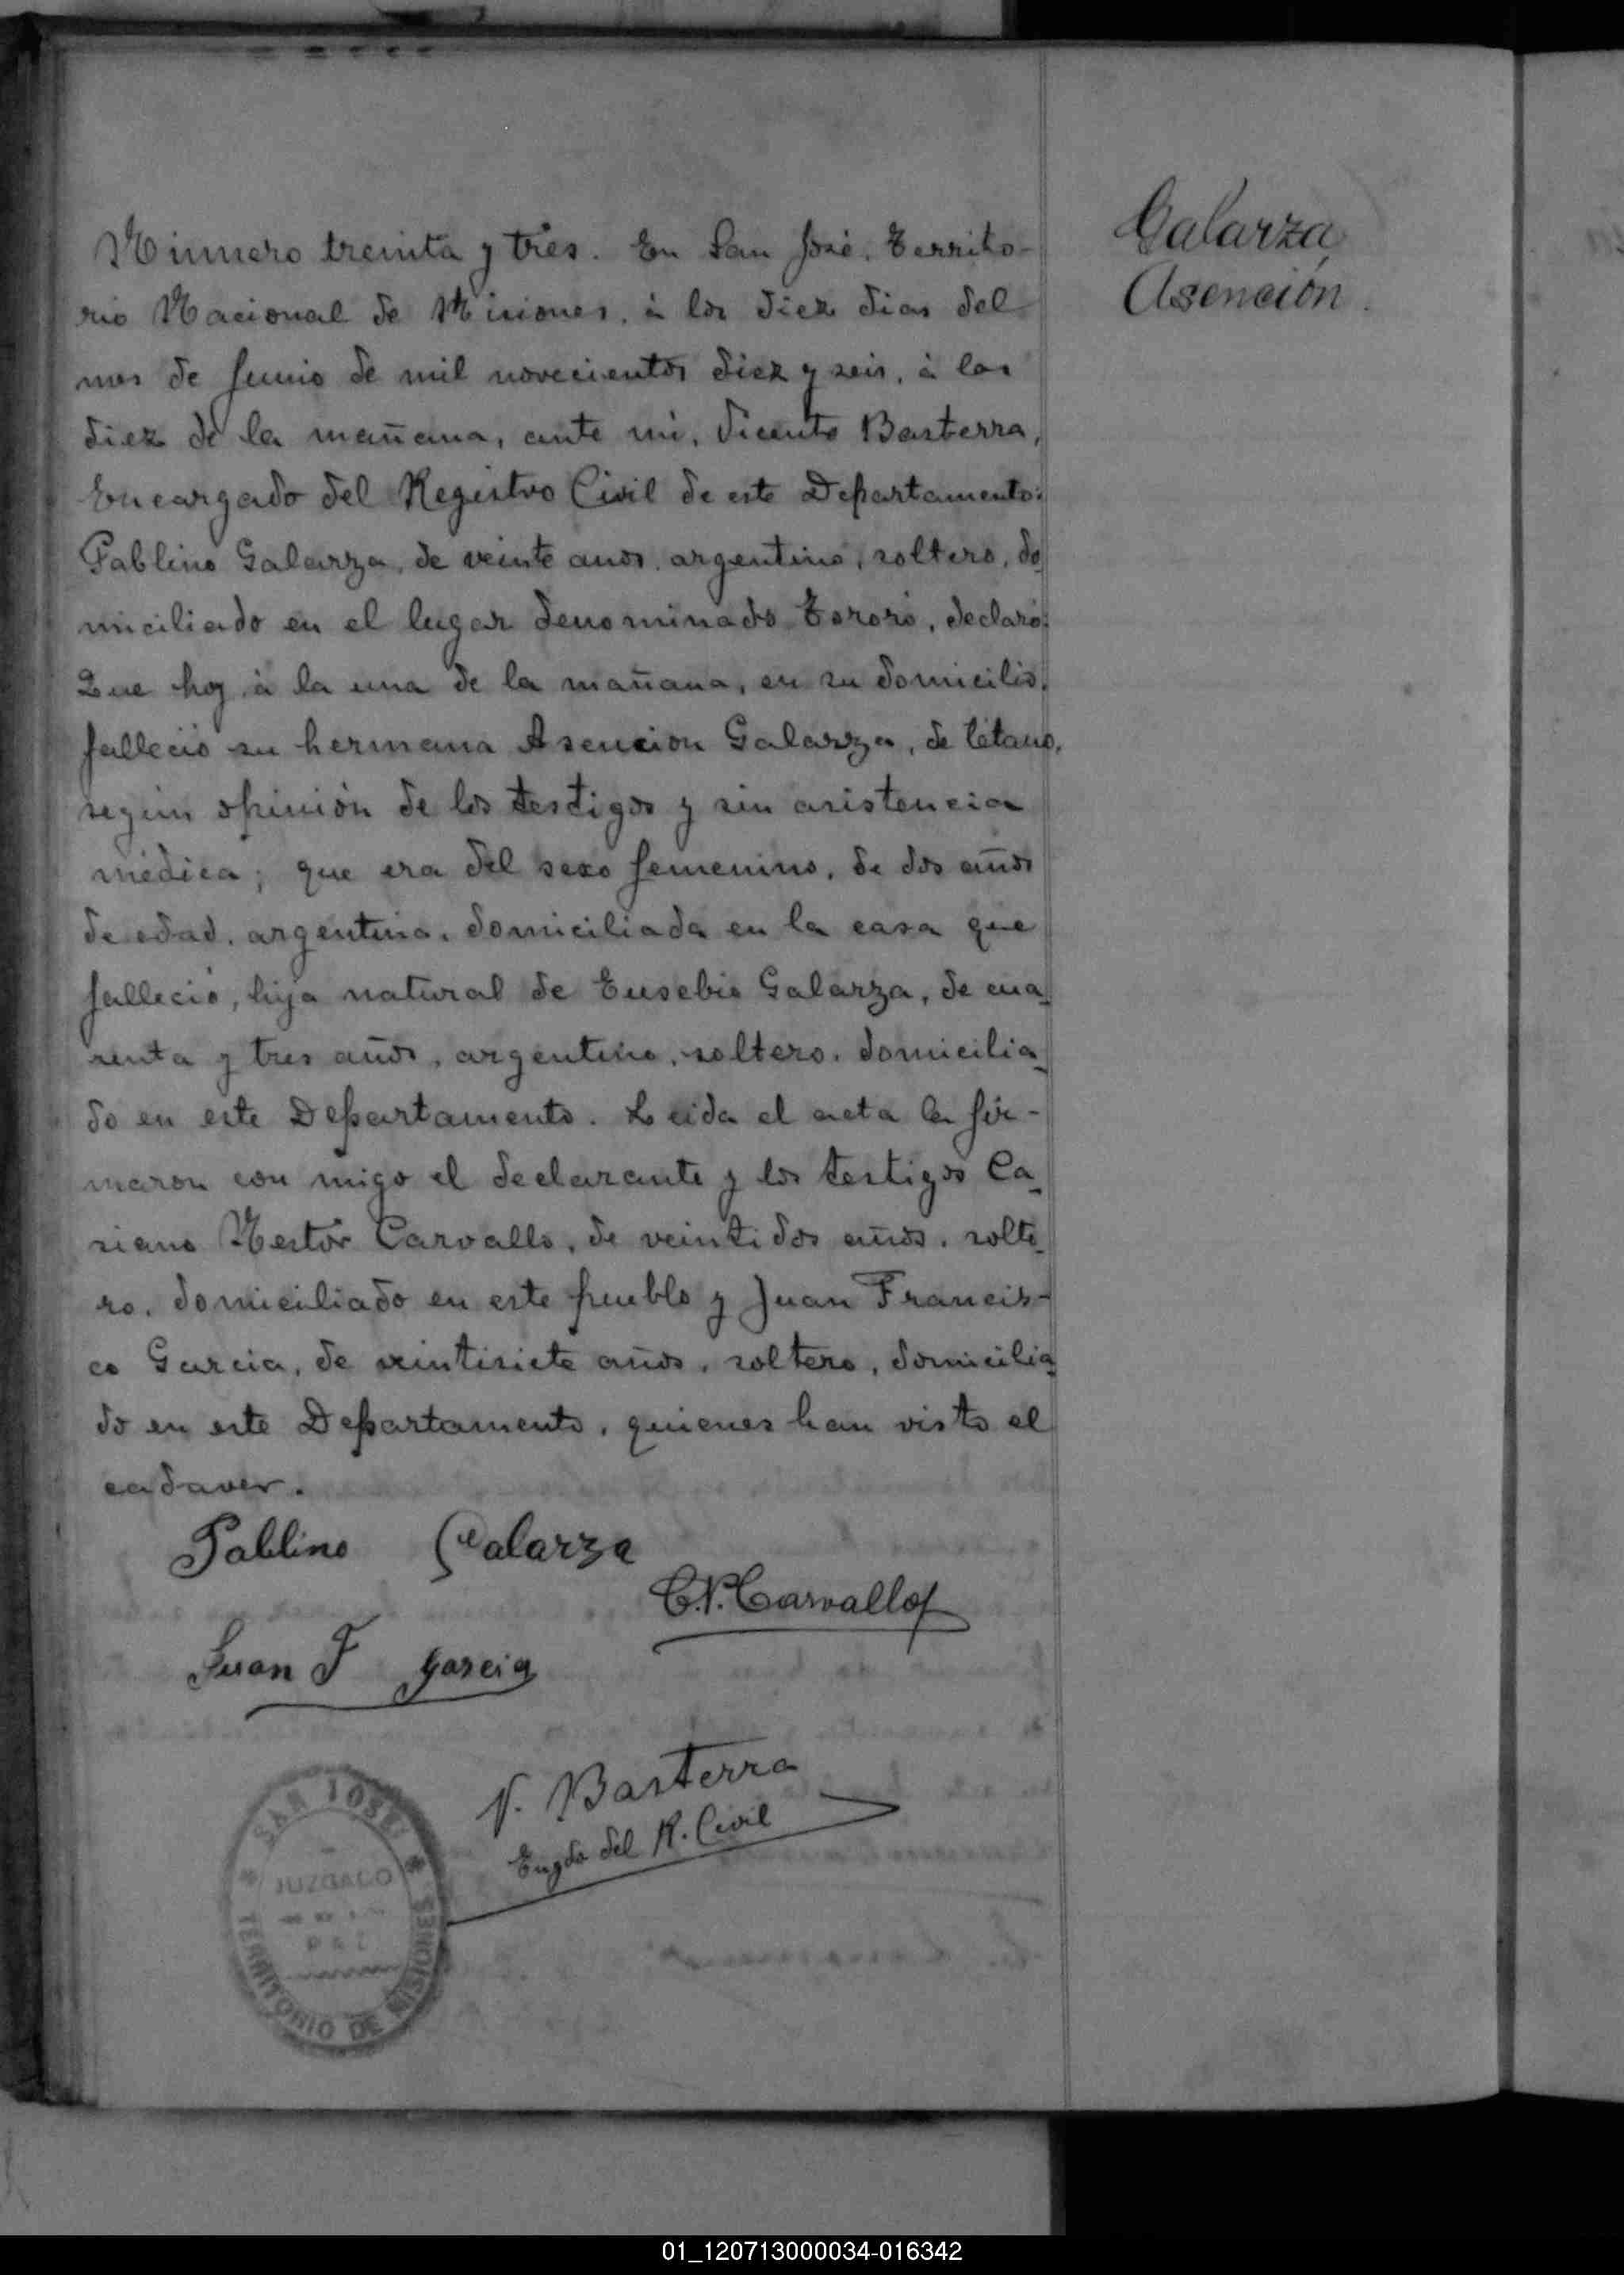 Número treinta y tres. En San José, Territo-
rio Nacional de Misiones, à los diez dias del
mes de Junio de mil novecientos diez y seis, à las
diez de la mañana, ante mi, Vicente Basterra,
Encargado del Registro Civil de este Departamento:
Pablino Galarza, de veinte anos, argentino, soltero, do
miciliado en el lugar denominado Tororó, declaró:
Que hoy à la una de la mañana, en su domicilio,
falleció su hermana Asencion Galarza, de tétano,
según opinión de los testigos y sin asistencia
médica; que era del sexo femenino, de dos años
de edad, argentina, domiciliada en la casa que
falleció, hija natural de Eusebio Galarza, de cua_
renta y tres años, argentino, soltero, domicilia_
do en este Departamento. Leida el acta la fir-
maron con migo el declarante y los testigos Ca_
siano Nestór Carvallo, de veintidos años, solte_
ro, domiciliado en este pueblo y Juan Francis-
co Garcia, de veintisiete años, soltero, domicilia_
do en este Departamento, quienes han visto el
cadaver.
Galarza,
Asención.
Pablino Galarza
C.N. Carvallo
Juan F Garcia
V. Basterra
Engdo del R. Civil
SAN JOSE
JUZGADO
PAZ
TERRITORIO DE MISIONES
01_120713000034-016342